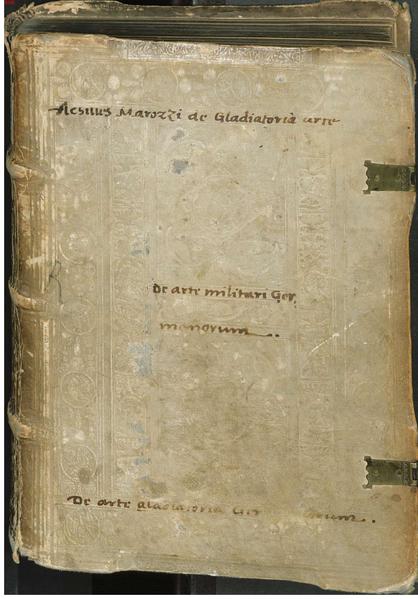 Marozzi de Gladiatoria arte
De arte militari Ger
manorum..
De arte gladiatoria Ger